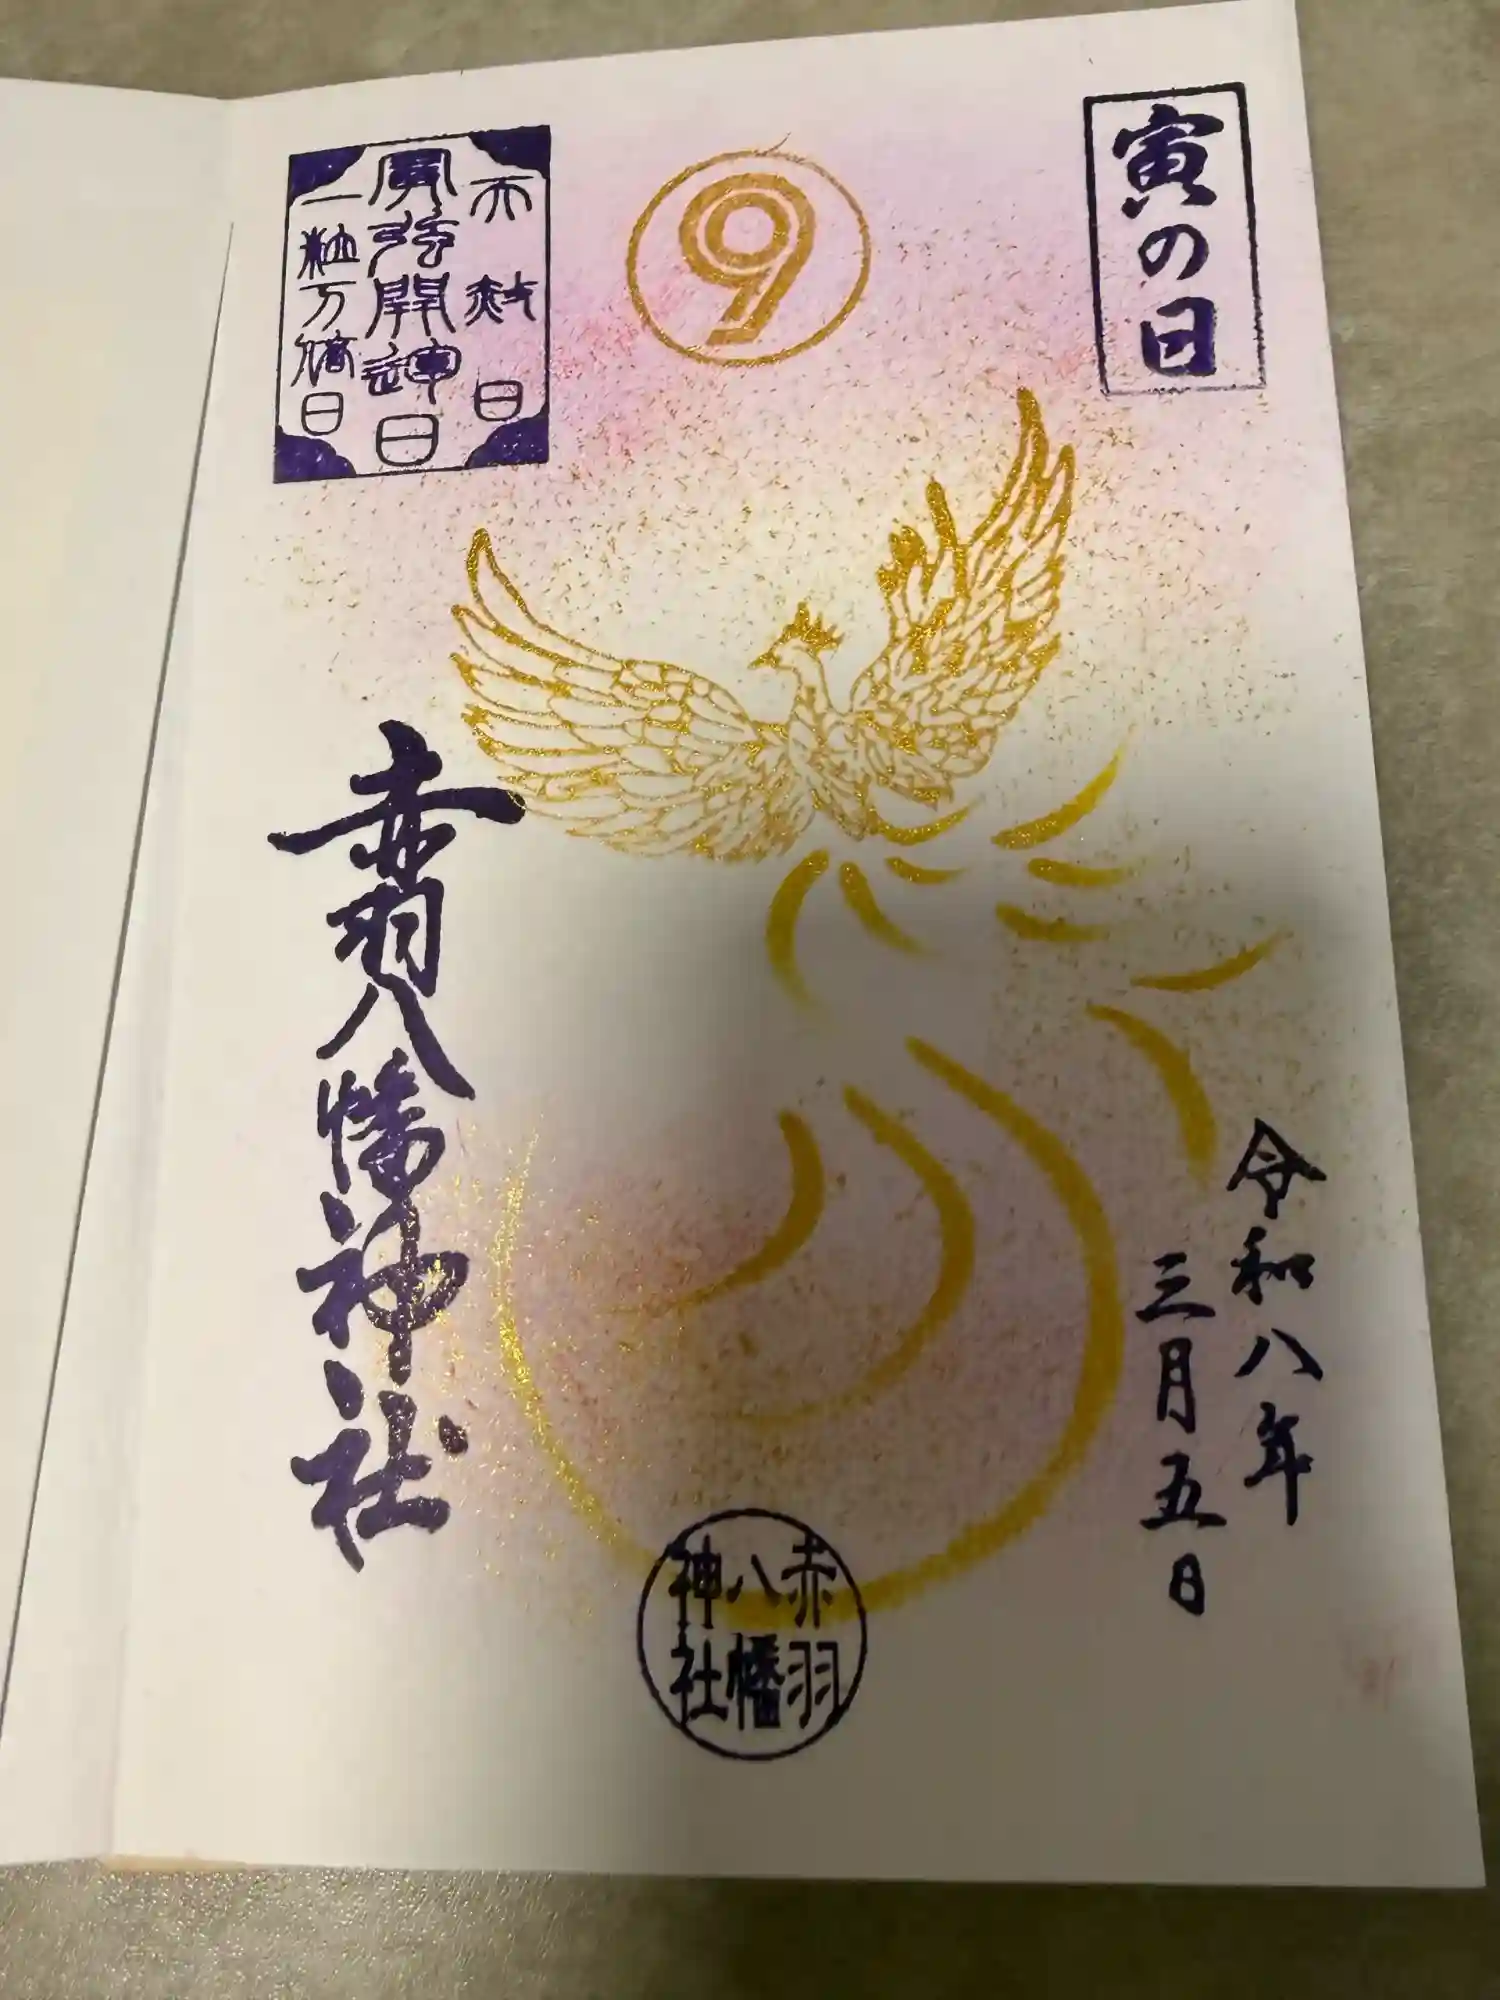 寅の日
9
天赦日
寅弥開運日
一粒万倍日
赤羽八幡神社
令和八年
三月五日
赤羽
八幡
神社